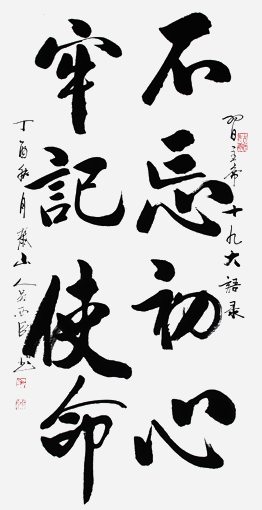 習主席十九大語录
不忘初心
牢記使命
丁酉秋月
山人